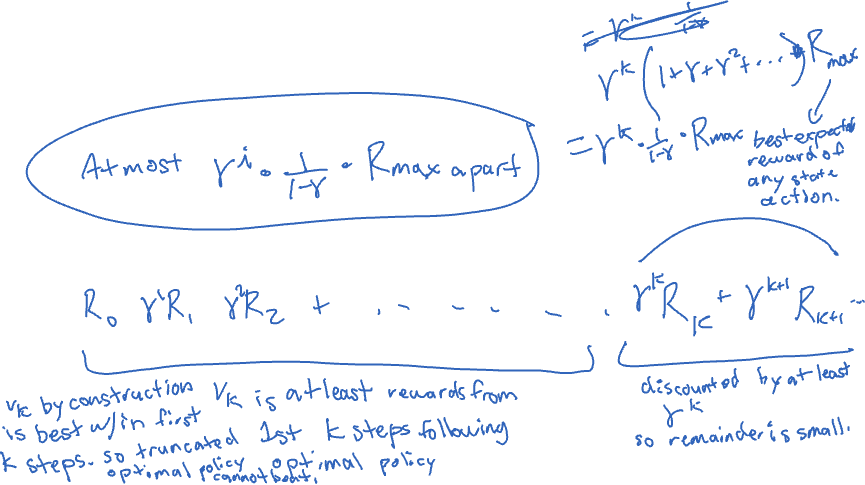 = γᵏ 1/(1-γ)
γᵏ (1+γ+γ²+...) Rmax
= γᵏ · 1/(1-γ) · Rmax
best expected
reward of
any state
action.
At most γⁱ · 1/(1-γ) · Rmax apart
R₀ γ¹R₁ γ²R₂ + . - - - - . γᵏRₖ + γᵏ⁺¹ Rₖ₊₁ ...
Vₖ by construction
is best w/in first
k steps. so truncated
optimal policy
cannot beat.
Vₖ is at least rewards from
1st k steps following
optimal policy
discounted by at least
γᵏ
so remainder is small.